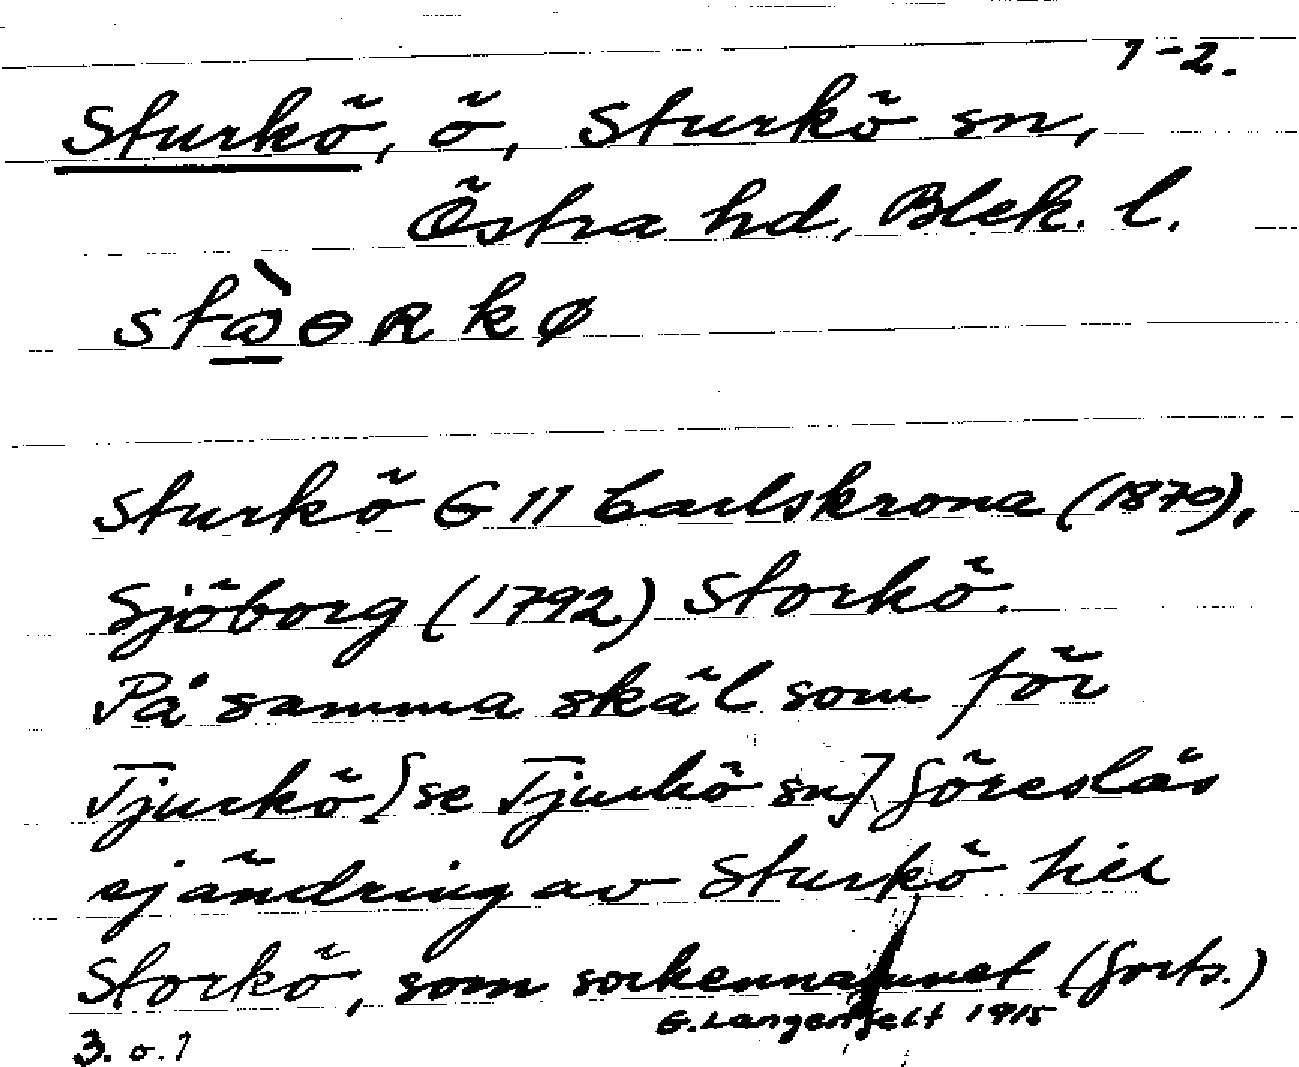 1-2.
Sturkö, ö, Sturkö sn,
Östra hd, Blek. l.
Sturkö G 11 Carlskrona (1870),
Sjöborg (1792) Storkö.
På samma skäl som för
Tjurkö [se Tjurkö sn] föreslås
ej ändring av Sturkö till
Storkö, som sockennamnet (forts.)
G. Langenfelt 1915
3. ö. 1